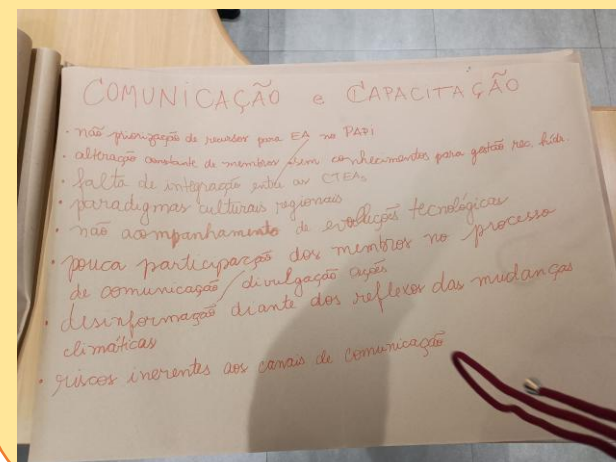 COMUNICAÇÃO e CAPACITAÇÃO
· não priorização de recursos para EA no PAPI
· alteração constante de membros / sem conhecimentos para gestão rec. hídr.
· falta de integração entre as CTEAs
· paradigmas culturais regionais
· não acompanhamento de evoluções tecnológicas
· pouca participação dos membros no processo
de comunicação / divulgação ações
· desinformação diante dos reflexos das mudanças
climáticas
· riscos inerentes aos canais de comunicação